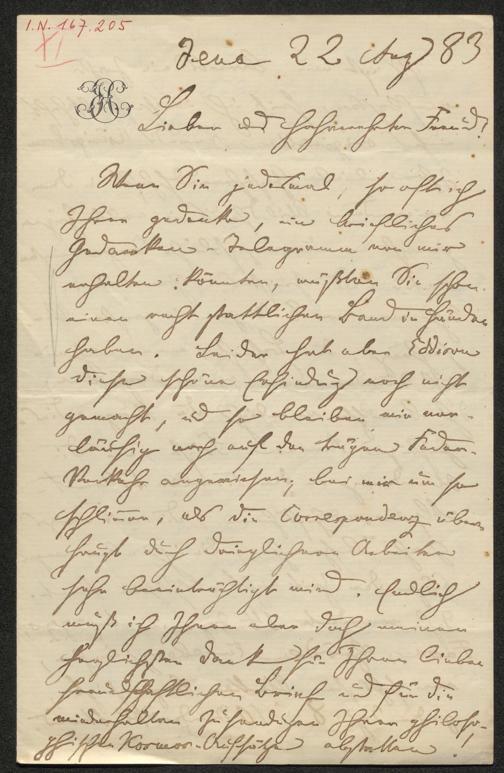 I.N. 167.205
XI
Jena 22 Aug 83
Lieber und hochverehrter Freund!
Wenn Sie jedesmal, so oft ich
Ihrer gedenke, ein briefliches
Gedanken-Telegramm von mir
erhalten könnten, müßten Sie schon
einen recht stattlichen Band in Händen
haben. Leider hat aber Eddison
diese schöne Erfindung noch nicht
gemacht, und so bleiben wir vor-
läufig noch auf den trägen Feder-
Verkehr angewiesen, bei mir um so
schlimmer, als die Correspondenz über-
haupt durch dringlichere Arbeiten
sehr beeinträchtigt wird. Endlich
muß ich Ihnen aber doch meinen
herzlichsten Dank für Ihren lieben
freundschaftlichen Brief und für die
wiederholten Zusendungen Ihrer philoso-
phischen Kosmos-Aufsätze abstatten!